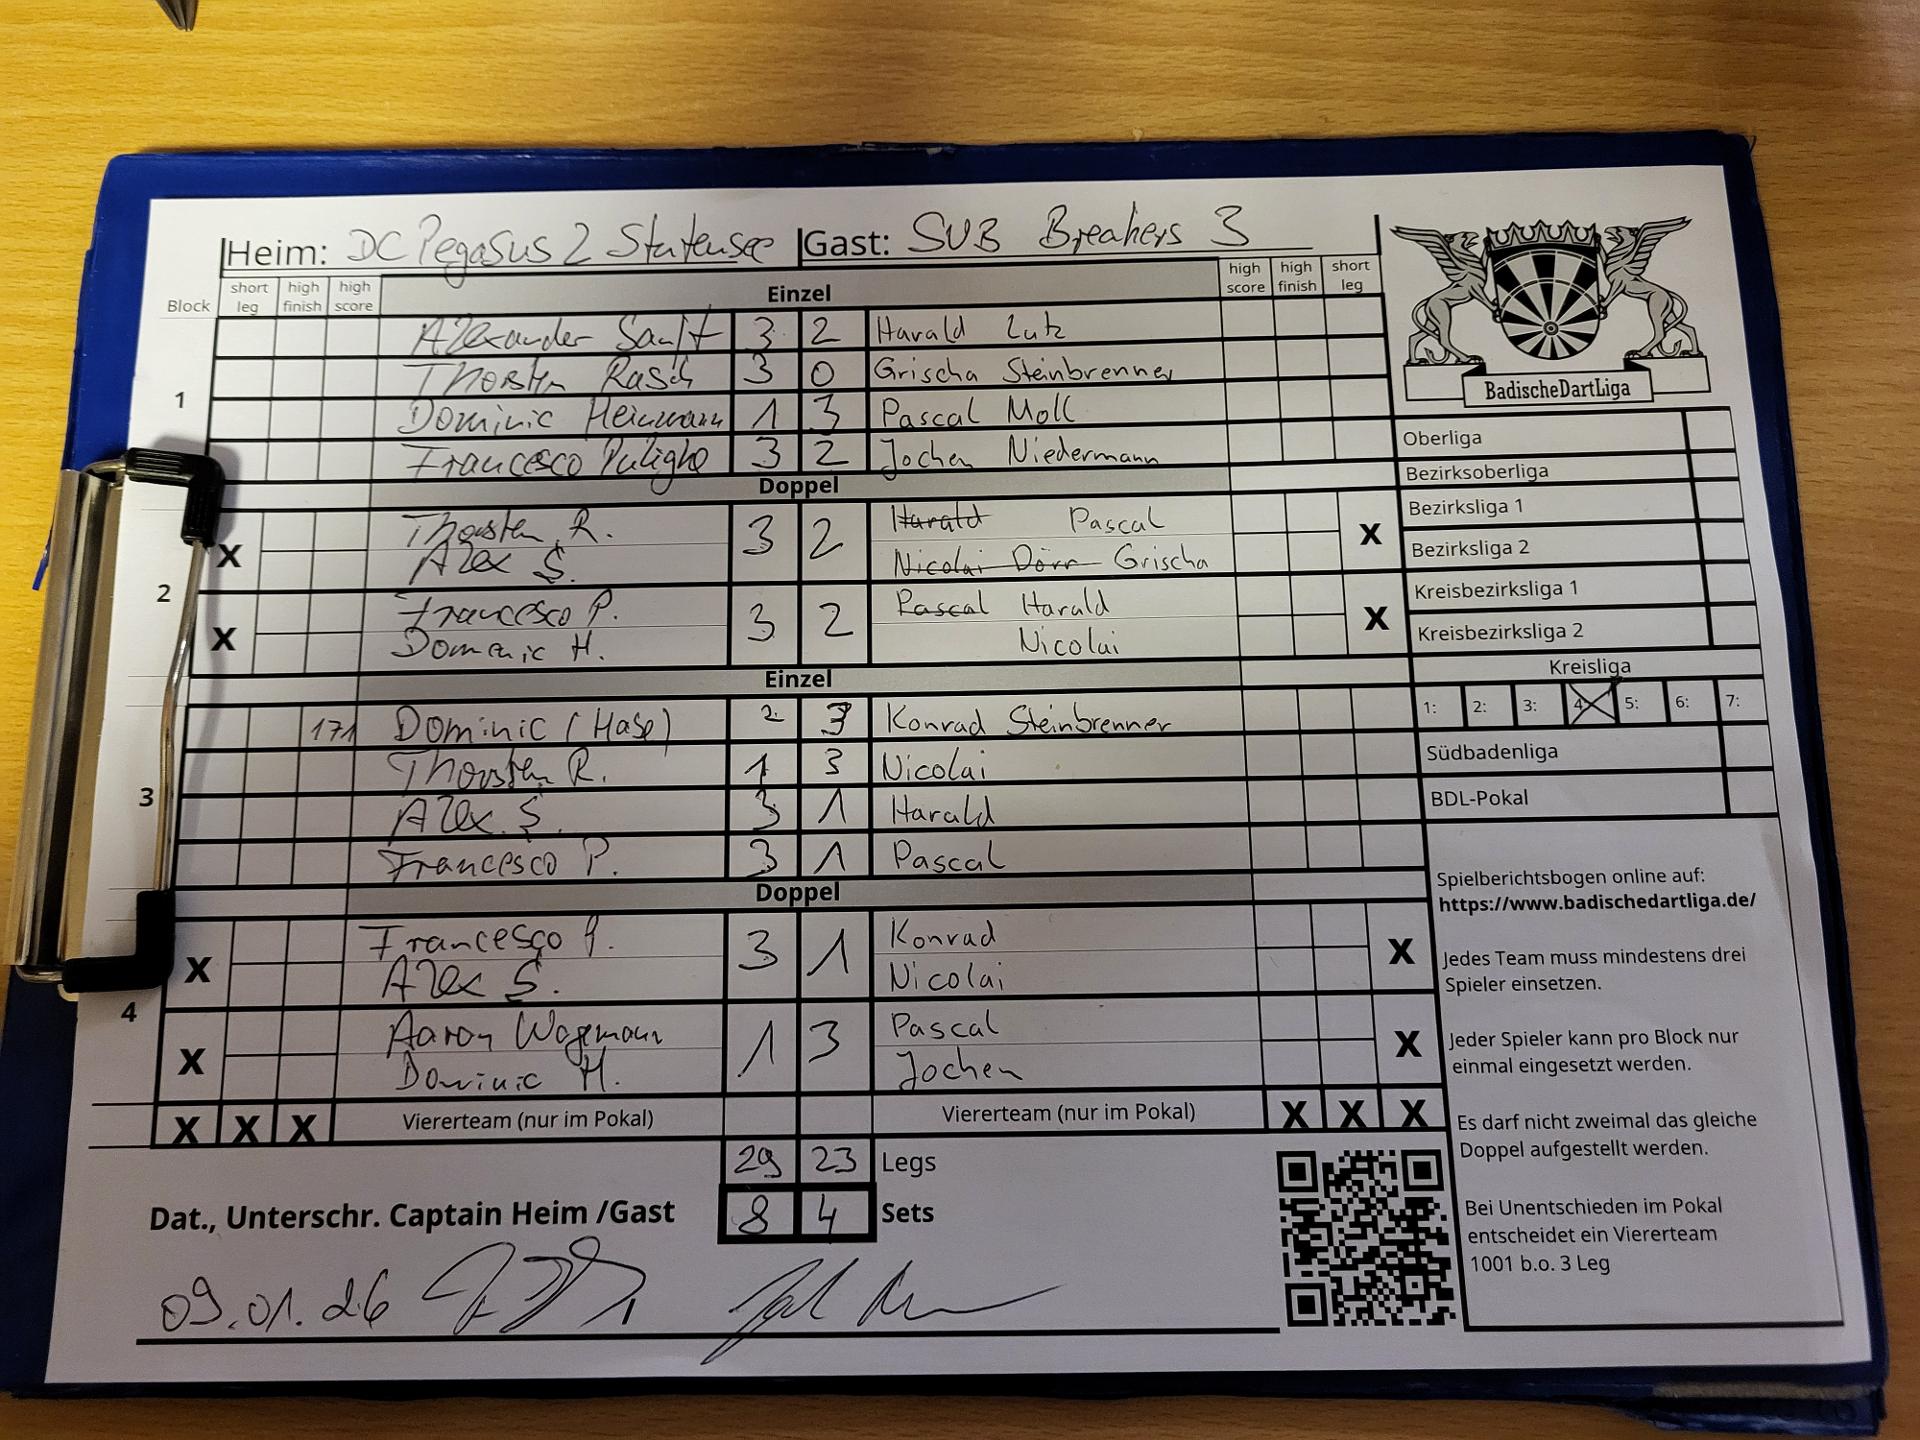 Heim: DC Pegasus 2 Stutensee Gast: SVB Breakers 3
Block short leg high finish high score Einzel high score high finish short leg
1
Alexander Sanft 3 2 Harald Lutz
Thorsten Rasch 3 0 Grischa Steinbrenner
Dominic Heinmann 1 3 Pascal Moll
Francesco Pulighe 3 2 Jochen Niedermann
Doppel
2
X Thorsten R. 3 2 Harald Pascal X
Alex S. Nicolai Dörr Grischa
X Francesco P. 3 2 Pascal Harald X
Domenic H. Nicolai
Einzel
3
171 Dominic (Hase) 2 3 Konrad Steinbrenner
Thorsten R. 1 3 Nicolai
Alex S. 3 1 Harald
Francesco P. 3 1 Pascal
Doppel
4
X Francesco P. 3 1 Konrad X
Alex S. Nicolai
X Aaron Wagemann 1 3 Pascal X
Dominic H. Jochen
X X X Viererteam (nur im Pokal) Viererteam (nur im Pokal) X X X
29 23 Legs
8 4 Sets
Dat., Unterschr. Captain Heim /Gast
09.01.26
BadischeDartLiga
Oberliga
Bezirksoberliga
Bezirksliga 1
Bezirksliga 2
Kreisbezirksliga 1
Kreisbezirksliga 2
Kreisliga
1: 2: 3: 4 5: 6: 7:
Südbadenliga
BDL-Pokal
Spielberichtsbogen online auf:
https://www.badischedartliga.de/
Jedes Team muss mindestens drei
Spieler einsetzen.
Jeder Spieler kann pro Block nur
einmal eingesetzt werden.
Es darf nicht zweimal das gleiche
Doppel aufgestellt werden.
Bei Unentschieden im Pokal
entscheidet ein Viererteam
1001 b.o. 3 Leg